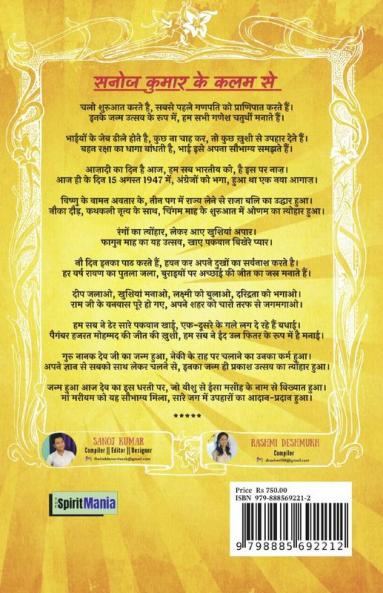 सनोज कुमार के कलम से
चलो शुरुआत करते है, सबसे पहले गणपति को प्राणिपात करते हैं।
इनके जन्म उत्सव के रूप में, हम सभी गणेश चतुर्थी मनाते हैं।
भाईयों के जेब ढीले होते है, कुछ ना चाह कर, तो कुछ खुशी से उपहार देते हैं।
बहन रक्षा का धागा बांधती है, भाई इसे अपना सौभाग्य समझते हैं।
आजादी का दिन है आज, हम सब भारतीय को, है इस पर नाज़।
आज ही के दिन 15 अगस्त 1947 में, अंग्रेजों को भगा, हुआ था एक नया आगाज़।
विष्णु के वामन अवतार के, तीन पग में राज्य लेने से राजा बलि का उद्धार हुआ।
नौका दौड़, कथकली नृत्य के साथ, चिंगम माह के शुरुआत में ओणम का त्योंहार हुआ।
रंगों का त्योंहार, लेकर आए खुशियां अपार।
फागुन माह का यह उत्सव, खाए पकवान बिखेरे प्यार।
नौ दिन इनका पाठ करते हैं, हवन कर अपने दुखों का सर्वनाश करते है।
हर वर्ष रावण का पुतला जला, बुराइयों पर अच्छाई की जीत का जश्न मनाते हैं।
दीप जलाओ, खुशियां मनाओ, लक्ष्मी को बुलाओ, दरिद्रता को भगाओ।
राम जी के बनवास पूरे हो गए, अपने शहर को चारो तरफ से जगमगाओ।
हम सब ने ढेर सारे पकवान खाई, एक-दुसरे के गले लग दे रहे हैं बधाई।
पैगंबर हजरत मोहम्मद की जीत की खुशी, हम सब ने ईद उल फितर के रूप में है मनाई।
गुरु नानक देव जी का जन्म हुआ, नेकी के राह पर चलाने का उनका कर्म हुआ।
अपने ज्ञान से सबको साथ लेकर चलने से, इनका जन्म ही प्रकाश उत्सव का त्योंहार हुआ।
जन्म हुआ आज देव का इस धरती पर, जो यीशु से ईसा मसीह के नाम से विख्यात हुआ।
मां मरीयम को यह सौभाग्य मिला, सारे जग में उपहारों का आदान-प्रदान हुआ।
*****
SANOJ KUMAR
Compiler || Editor || Designer
RASHMI DESHMUKH
Compiler
SpiritMania
Price Rs 750.00
ISBN 979-888569221-2
9 798885 692212